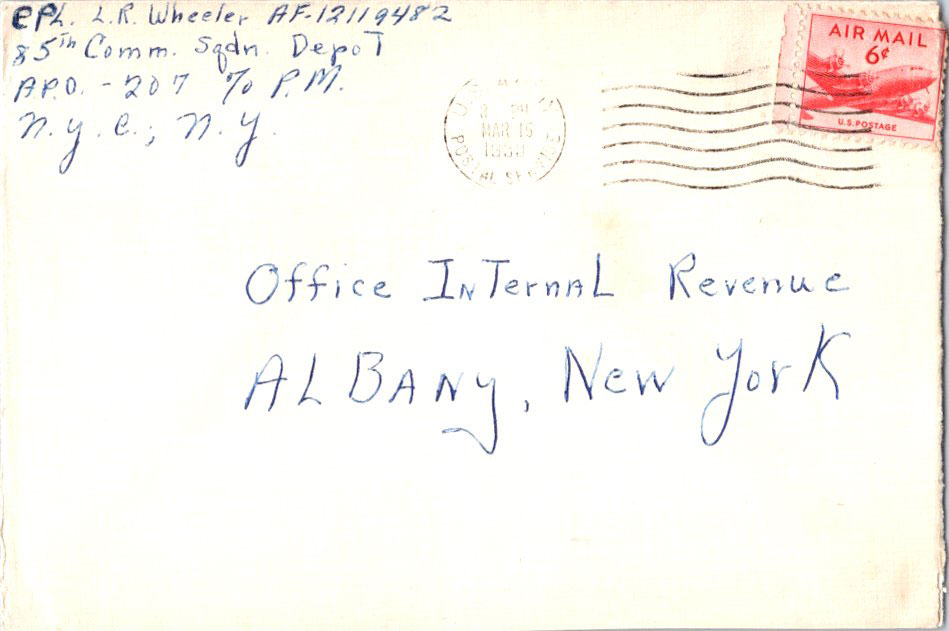 CPL. L.R. Wheeler AF-12119482
85th Comm. Sqdn. Depot
A.P.O. - 207 % P.M.
N.Y.C., N.Y.
MAR 15
POSTAL
AIR MAIL
6¢
U.S. POSTAGE
Office Internal Revenue
Albany, New York